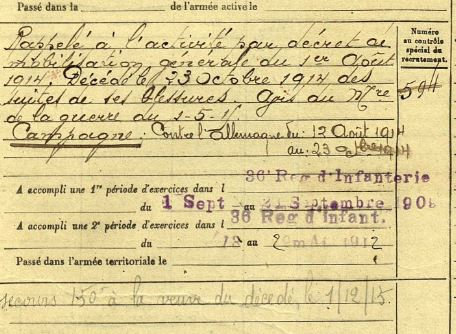 Passé dans la de l'armée active le
Numéro
au contrôle
spécial du
recrutement.
Rappelé à l'activité par décret de
mobilisation générale du 1er Août
1914. Décédé le 23 Octobre 1914 des
suites de ses blessures. Avis du Mtre
de la guerre du 1-5-15
Campagne: Contre l'Allemagne du: 12 Août 1914
au: 23 8bre 1914
36e Reg d'Infanterie
A accompli une 1re période d'exercices dans l
du 1 Sept au 21 Septembre 908
36 Reg d'Infant.
A accompli une 2e période d'exercices dans l
du au mai 1912
Passé dans l'armée territoriale le
secours 150f à la veuve du décédé, le 1/12/15